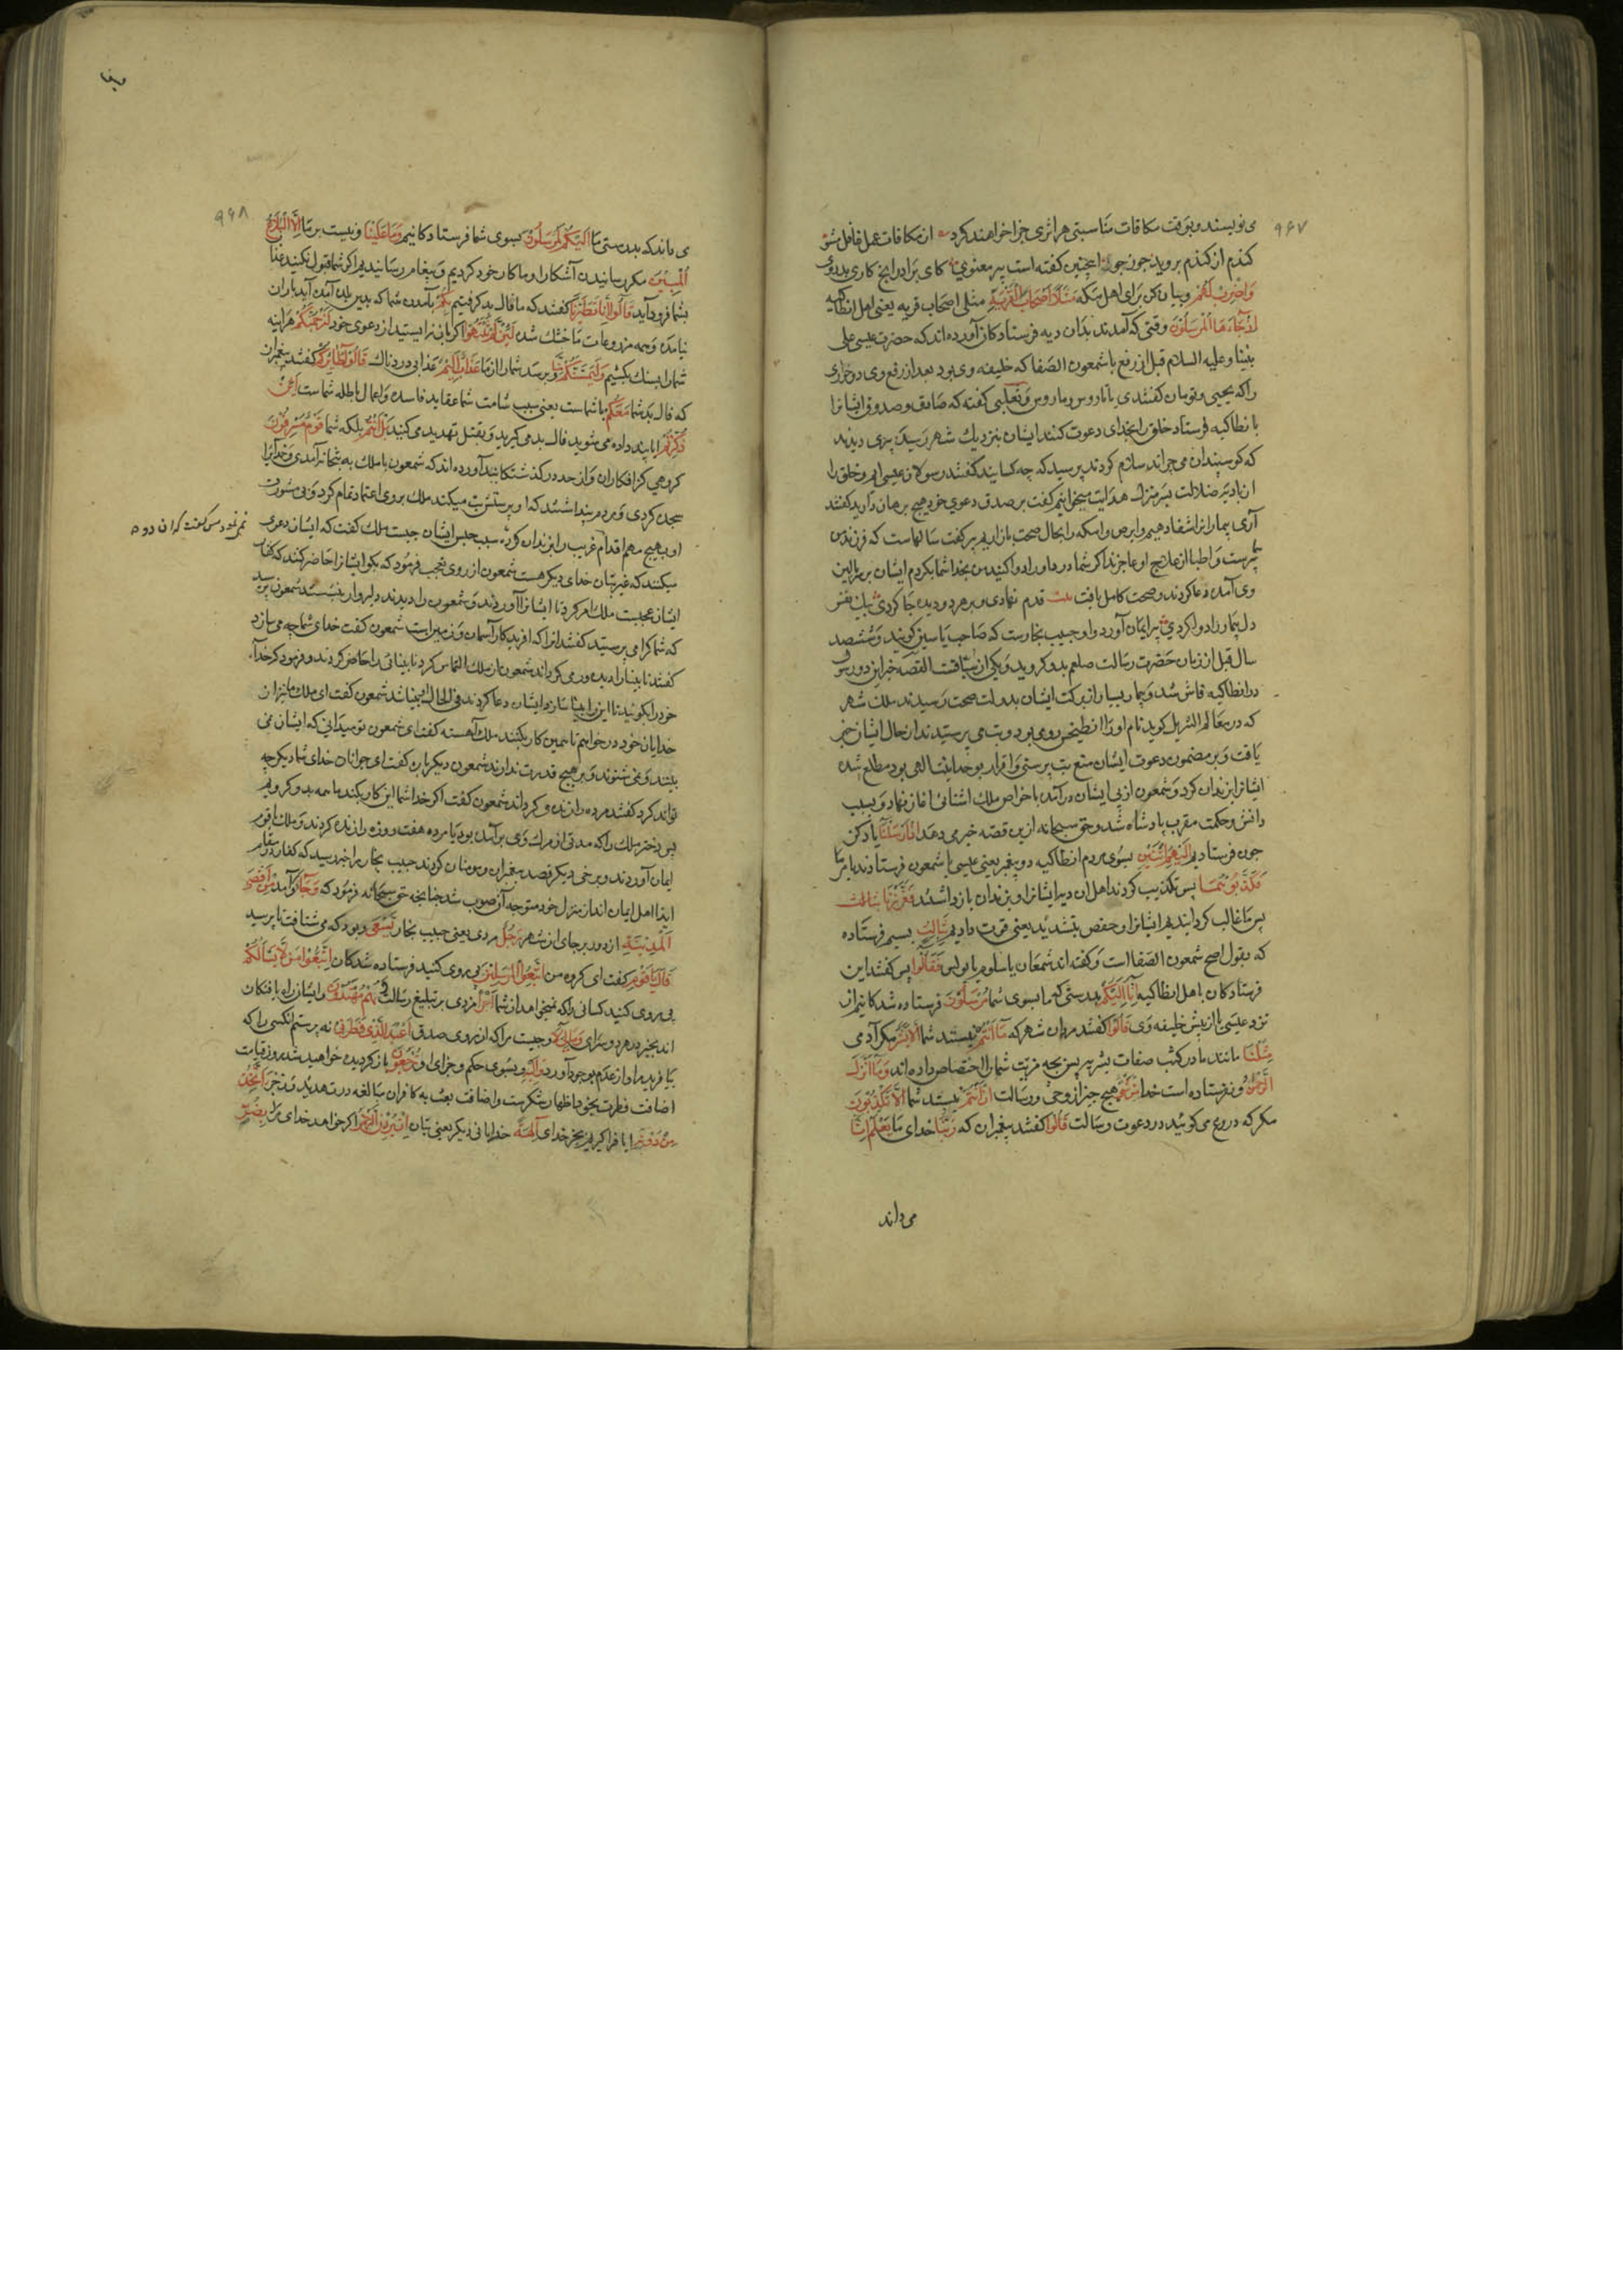 ۹۶۷
می نویسند و بوقت مکافات مناسبتی هر اثری جزا خواهند کرد از مکافات عمل غافل مشو
کندم از کندم بروید جو ز جو اینچنین کفته است پیر معنوی کای برادر انچ کاری بدروی
وَاضْرِبْ لَهُمْ و بیان کن برای اهل مکه مَثَلًا اَصْحَابَ الْقَرْیَةِ مثلی اصحاب قریه یعنی اهل انطاکیه
اِذْ جَاءَهَا الْمُرْسَلُونَ وقتی که آمدند بدان دیه فرستادکان آورده اند که حضرت عیسی علی
نبینا و علیه السلام قبل از رفع یا شمعون الصفا که خلیفه وی بود بعد از رفع وی دو حواری
را که یحیی و تومان کفتندی یا تاروس و ماروس و ثعلبی کفته که صادق و صدوق ایشانرا
بانطاکیه فرستاد خلق را بخدای دعوت کنند ایشان بنزدیک شهر رسید پیری دیدند
که کوسبندان می چراند سلام کردند پرسید که چه کسانید کفتند رسولان عیسی ایم و خلق را
از بادیه ضلالت بسرمنزل هدایت میخوانیم کفت بر صدق دعوی خود هیچ برهان دارید کفتند
آری بیمارانرا شفا دهیم و ابرص و اکمه را بحال صحت باز اریم پیر کفت سالهاست که فرزند من
بیمارست و اطبا از علاج او عاجزند اکر شما درد او را دوا کنید من بخدا شما بکردم ایشان بر بالین
وی آمده دعا کردند و صحت کامل یافت بیت قدم نهادی و بر هر دو دیده جا کردی بیک نفس
دل بیمار را دوا کردی پیر ایمان آورد و او حبیب نجارست که صاحب یاسین کویند و ششصد
سال قبل از زمان حضرت رسالت صلعم بدو کروید و یکی از سباقست القصه خبر این دو رسول
در انطاکیه فاش شد و بیمار بسیار از برکت ایشان بدولت صحت رسیدند ملک شهر
که در معالم التنزیل کوید نام او را انطیخس رومی بود و بت می پرستیدند از حال ایشان خبر
یافت و بر مضمون دعوت ایشان منع بت پرستی و اقرار بوحدانیت الهی بود مطلع شده
ایشانرا بزندان کرد و شمعون از پی ایشان درآمد با خواص ملک اشنائی اغاز نهاد و بسبب
دانش و حکمت مقرب پادشاه شد و حق سبحانه ازین قصه خبر می دهد اِذْ اَرْسَلْنَا یاد کن
چون فرستادیم اِلَیْهِمُ اثْنَیْنِ بسوی مردم انطاکیه دو پیغمبر یعنی عیسی یا شمعون فرستادند بامر ما
فَکَذَّبُوهُمَا پس تکذیب کردند اهل ان دیه ایشانرا و بزندان بازداشتند فَعَزَّزْنَا بِثَالِثٍ
پس ما غالب کردانیدیم ایشانرا و حفص بتشدید یعنی قوت دادیم بِثَالِثٍ بسیم فرستاده
که بقول اصح شمعون الصفا است و کفته اند شمعان یا سلوم یا بولس فَقَالُوا پس کفتند این
فرستادکان باهل انطاکیه اِنَّا اِلَیْکُمْ بدرستی که ما بسوی شما مُرْسَلُونَ فرستاده شدکانیم از
نزد عیسی یا از پیش خلیفه وی قَالُوا کفتند مردان شهر که مَا اَنْتُمْ نیستید شما اِلَّا بَشَرٌ مکر آدمی
مِثْلُنَا مانند ما در کسب صفات بشریه پس بچه مزیت شما را اختصاص داده اند وَمَا اَنْزَلَ
الرَّحْمٰنُ و نفرستاده است خدا مِنْ شَیْءٍ هیچ چیز از وحی و رسالت اِنْ اَنْتُمْ نیستید شما اِلَّا تَکْذِبُونَ
مکر که دروغ می کوئید در دعوت رسالت قَالُوا کفتند پیغمبران که رَبُّنَا خدای ما یَعْلَمُ اِنَّا
می داند
۹۶۸
می داند که بدرستی ما اِلَیْکُمْ لَمُرْسَلُونَ بسوی شما فرستادکانیم وَمَا عَلَیْنَا و نیست بر ما اِلَّا الْبَلَاغُ
الْمُبِینُ مکر رسانیدن آشکارا و ما کار خود کردیم و پیغام رسانیدیم اکر شما قبول نکنید عذاب
بشما فرود آید قَالُوا اِنَّا تَطَیَّرْنَا کفتند که ما فال بد کرفتیم بِکُمْ بآمدن شما که بدین بلده آمده آید باران
نیامده و همه مزروعات ما خشک شده لَئِنْ لَمْ تَنْتَهُوا اکر باز نه ایستید از دعوی خود لَنَرْجُمَنَّکُمْ هراینه
شما را بسنک بکشیم وَلَیَمَسَّنَّکُمْ و برسد شما را از ما عَذَابٌ اَلِیمٌ عذابی دردناک قَالُوا طَائِرُکُمْ کفتند پیغمبران
که فال بد شما مَعَکُمْ با شماست یعنی سبب شامت شما عقاید فاسده و اعمال باطله شماست اَئِنْ
ذُکِّرْتُمْ ایا پند داده می شوید فال بد می کیرید و بقتل تهدید می کنید بَلْ اَنْتُمْ بلکه شما قَوْمٌ مُسْرِفُونَ
کروهی کزافکاران و از حد درکذشتکانید آورده اند که شمعون با ملک به بتخانه آمدی و خدایرا
سجده کردی و مردم پنداشتند که او پرستش بت میکند ملک بر وی اعتماد تمام کرد و بی مشورت
او بهیچ مهم اقدام
نمی نمود پس کفت که ان دو
غریب را بزندان کرده سبب حبس ایشان چیست ملک کفت که ایشان دعوی
میکنند که غیر بتان خدای دیکر هست شمعون از روی تعجب فرمود که بکو ایشانرا حاضر کنند که کفتار
ایشان عجبست ملک امر کرد تا ایشانرا آوردند و شمعون را دیدند دلیروار بنشستند شمعون پرسید
که شما کرا می پرستید کفتند انرا که افریدکار آسمان و زمین است شمعون کفت خدای شما چه می سازد
کفتند نابینا را دیده ور می کرداند شمعون از ملک التماس کرد تا نابینائی را حاضر کردند و فرمود که خدای
خود را بکوئید تا این را بینا سازد ایشان دعا کردند فی الحال بینا شد شمعون کفت ای ملک ما نیز از
خدایان خود درخواهیم تا همین کار بکنند ملک آهسته کفت ای شمعون تو میدانی که ایشان نمی
بینند و نمی شنوند و بر هیچ قدرت ندارند شمعون دیکر بار کفت ای جوانان خدای شما دیکر چه
تواند کرد کفتند مرده را زنده کرداند شمعون کفت اکر خدا شما این کار بکند ما همه بدو کرویم
پس دختر ملک را که مدتی از مرک وی برآمده بود یا مرده هفت روزه را زنده کردند و ملک با قوم
ایمان آوردند و برخی دیکر قصد پیغمبران و مومنان کردند حبیب نجار را خبر رسید که کفار در مقام
ایذا اهل ایمان اند از منزل خود متوجه آن صوب شد چنانچه حق سبحانه فرمود که وَجَاءَ و آمد مِنْ اَقْصَی
الْمَدِینَةِ از دورترجای از شهر رَجُلٌ مردی یعنی حبیب نجار یَسْعَی و بود که می شتافت تا پرسید
قَالَ یَا قَوْمِ کفت ای کروه من اتَّبِعُوا الْمُرْسَلِینَ پی روی کنید فرستاده شدکان اتَّبِعُوا مَنْ لَا یَسْاَلُکُمْ
پی روی کنید کسانی را که نمیخواهد از شما اَجْرًا مزدی بر تبلیغ رسالت وَهُمْ مُهْتَدُونَ و ایشان راه یافتکان
اند بخیر هر دو سرای وَمَا لِیَ و چیست مرا که از روی صدق لَا اَعْبُدُ الَّذِی فَطَرَنِی نه پرستم انکسی را که
بیافرید مرا و از عدم بوجود آورد وَاِلَیْهِ و بسوی حکم و جزای او تُرْجَعُونَ باز کردیده خواهید شد روز قیامت
اضافت فطرت بخود اظهار شکرست و اضافت بعث به کافران مبالغه در تهدید و زجر ءَاَتَّخِذُ
مِنْ دُونِهِ ایا فرا کیرم بجز خدای آلِهَةً خدایانی دیکر یعنی بتان اِنْ یُرِدْنِ الرَّحْمٰنُ اکر خواهد خدای مرا بِضُرٍّ